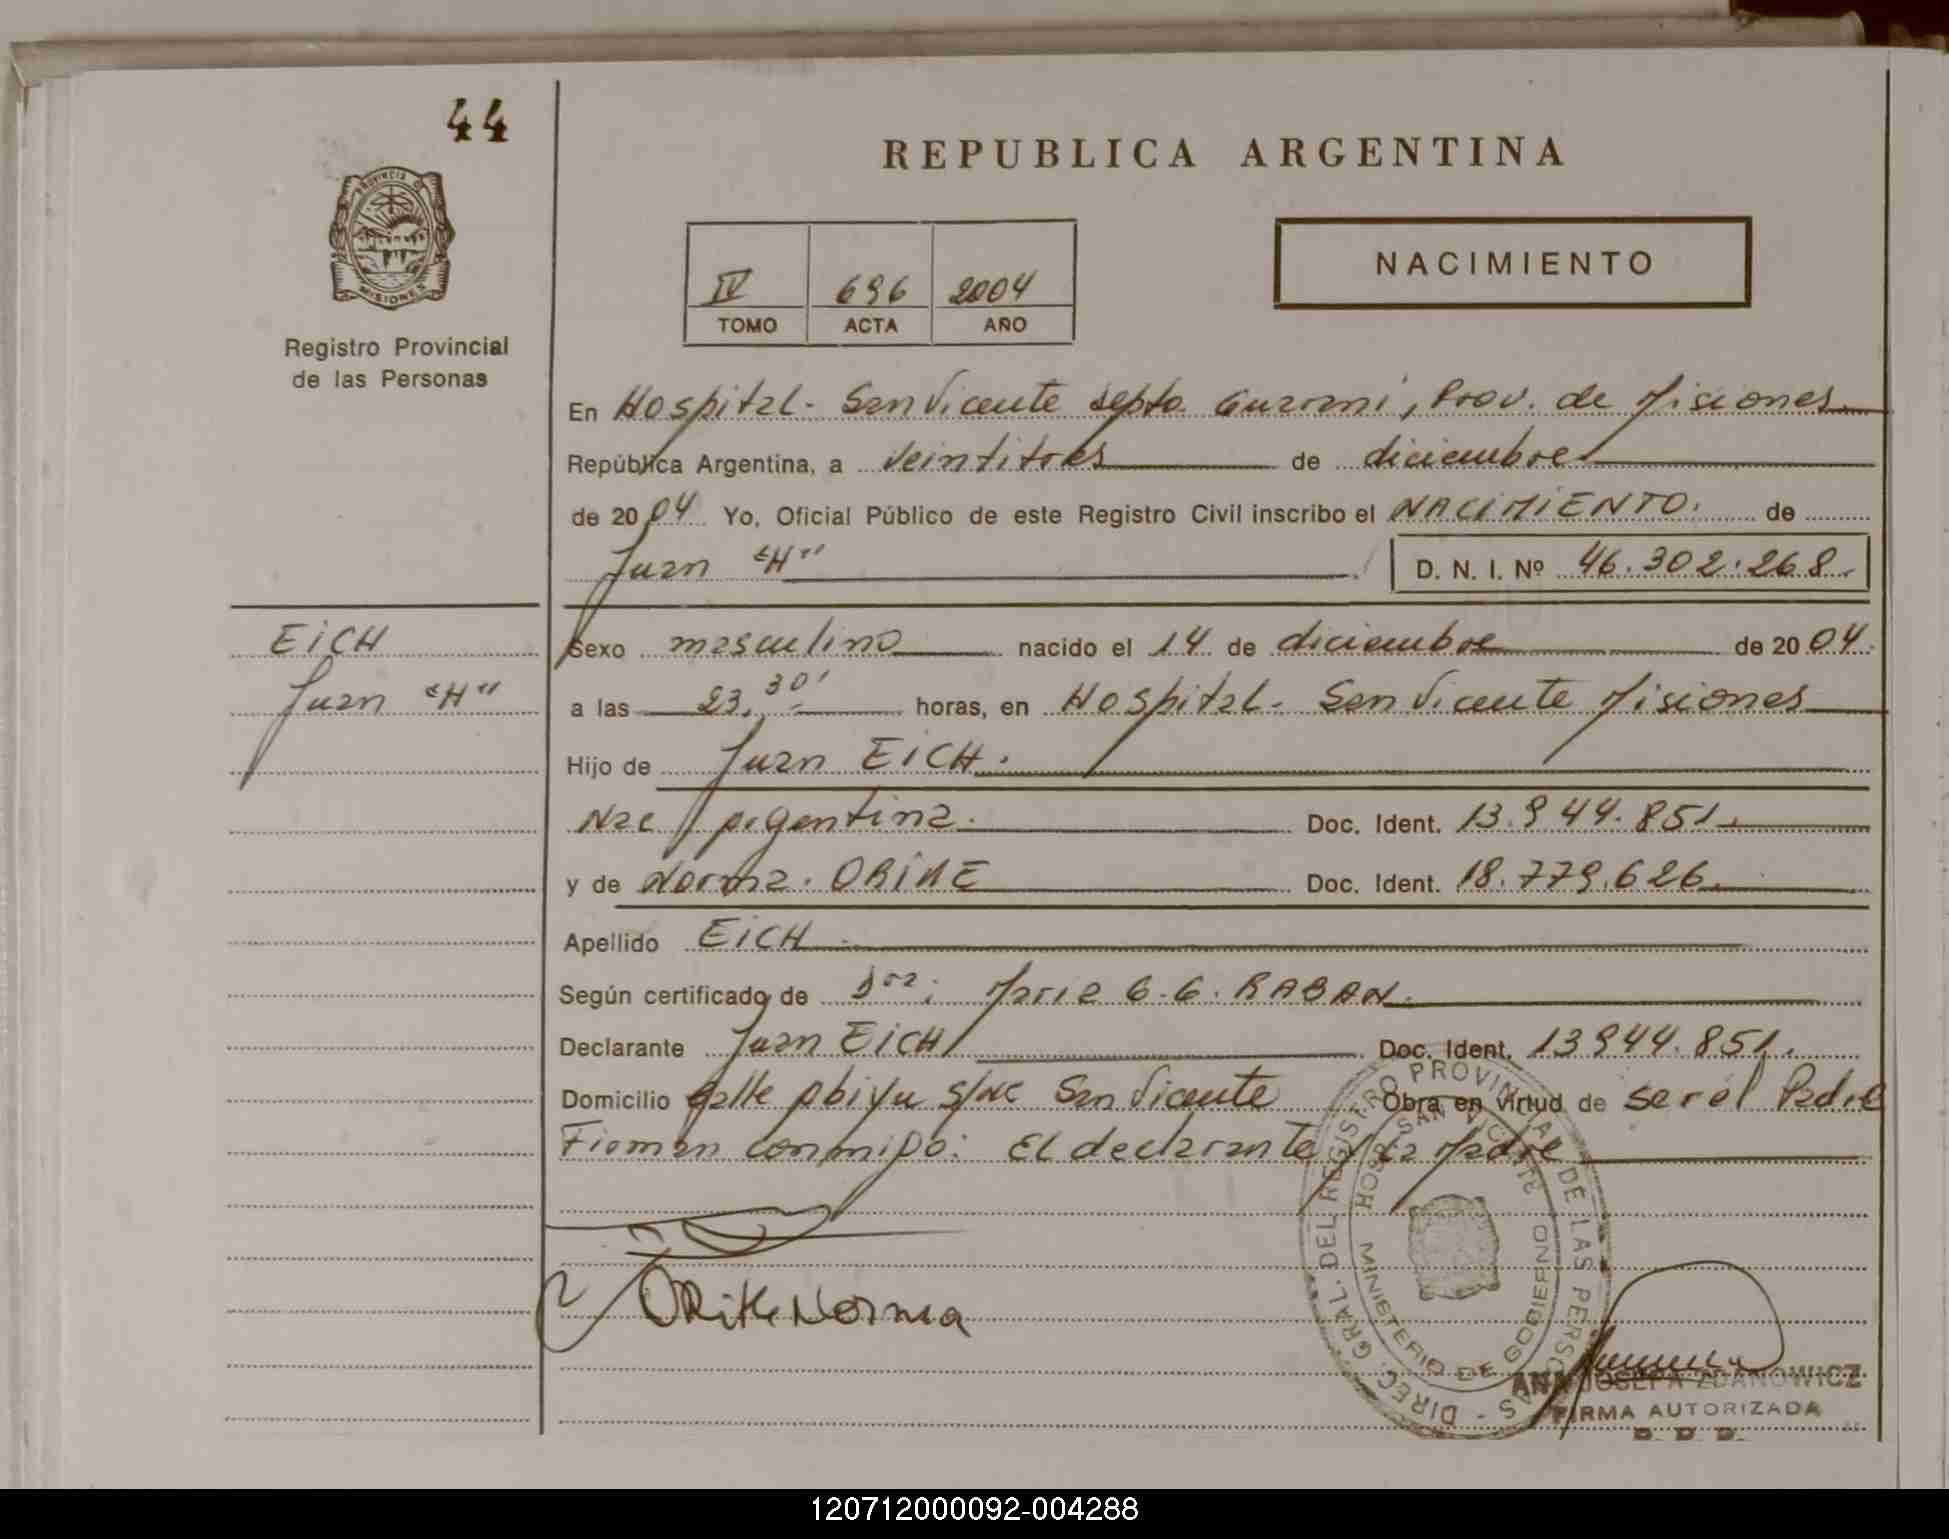 44
PROVINCIA DE
MISIONES
Registro Provincial
de las Personas
REPUBLICA ARGENTINA
IV 696 2004
TOMO ACTA AÑO
NACIMIENTO
En Hospital - San Vicente Depto. Guarani, Prov. de Misiones
República Argentina, a veintitres de diciembre
de 2004 Yo, Oficial Público de este Registro Civil inscribo el NACIMIENTO. de
Juan "H" D. N. I. Nº 46.302.268.
EiCH
Juan "H"
Sexo masculino nacido el 14 de diciembre de 2004
a las 23,30' horas, en Hospital - San Vicente Misiones
Hijo de Juan EiCH.
Nac Argentina. Doc. Ident. 13.944.851.
y de Norma. Doc. Ident. 18.779.626.
Apellido EiCH
Según certificado de Dra: Maria G.G. RABAN.
Declarante Juan EiCH Doc. Ident. 13944.851.
Domicilio Calle Abiyu S/Nº San Vicente Obra en virtud de ser el Padre
Firman conmigo: El declarante y la Madre
Norma
DIREC. GRAL. DEL REGISTRO PROVINCIAL DE LAS PERSONAS -
HOSP. SAN VICENTE
MINISTERIO DE GOBIERNO
ANA JOSEFA ZDANOWICZ
FIRMA AUTORIZADA
120712000092-004288